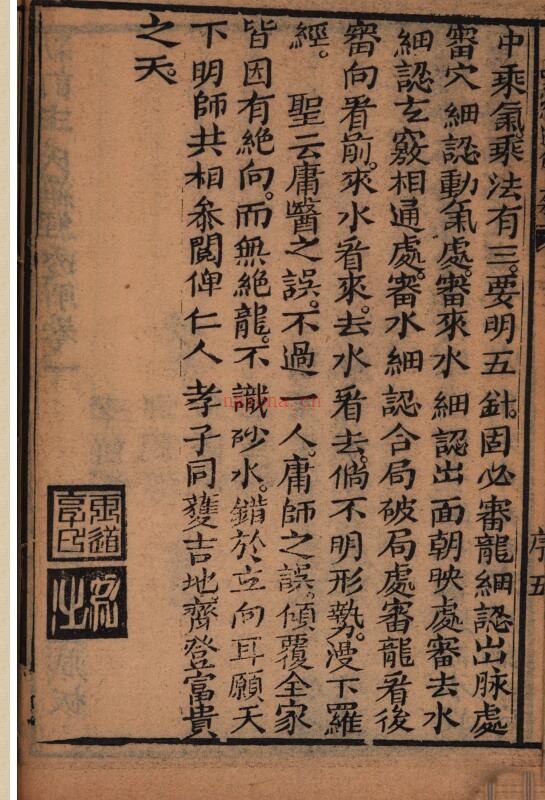 中乘氣乘法有三。要明五針。固必審龍細認出脉處
審穴細認動氣處。審來水細認出面朝映處審去水
細認玄竅相通處。審水細認合局破局處審龍看後
審向看前。來水看來。去水看去。倘不明形勢。漫下羅
經。聖云庸醫之誤。不過一人。庸師之誤。傾覆全家
皆因有絶向。而無絶龍。不識砂水。錯於立向耳願天
下明師共相參閱俾仁人孝子同獲吉地齊登富貴
之天。
序五